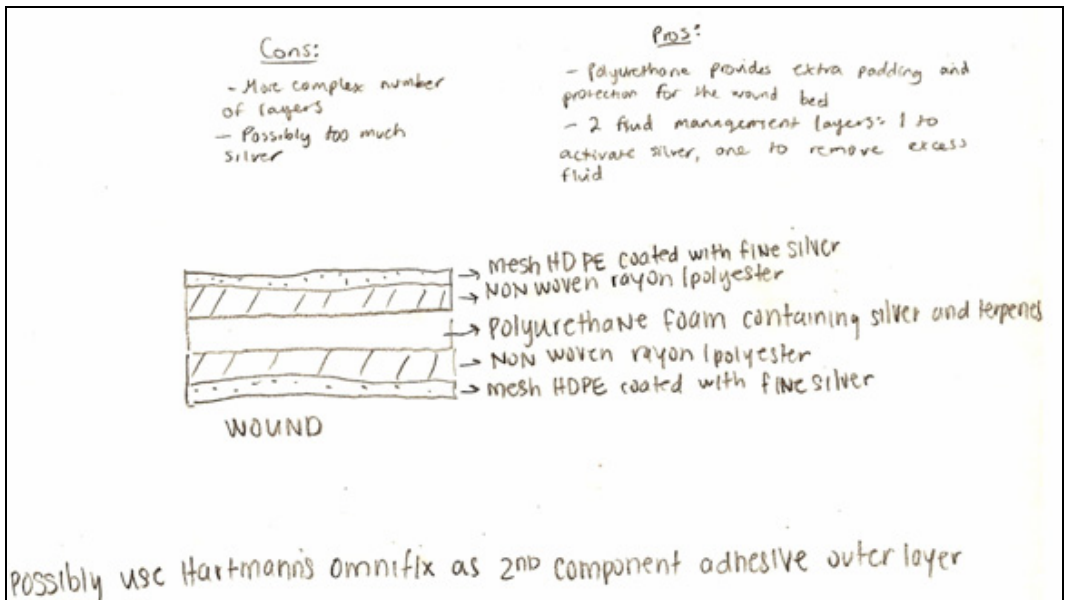 Cons:
- More complex number
of layers
- Possibly too much
silver
Pros:
- Polyurethane provides extra padding and
protection for the wound bed
- 2 fluid management layers: 1 to
activate silver, one to remove excess
fluid
mesh HDPE coated with fine silver
NON woven rayon/polyester
polyurethane foam containing silver and terpenes
NON woven rayon/polyester
mesh HDPE coated with fine silver
WOUND
possibly use Hartmann's omnifix as 2nd component adhesive outer layer